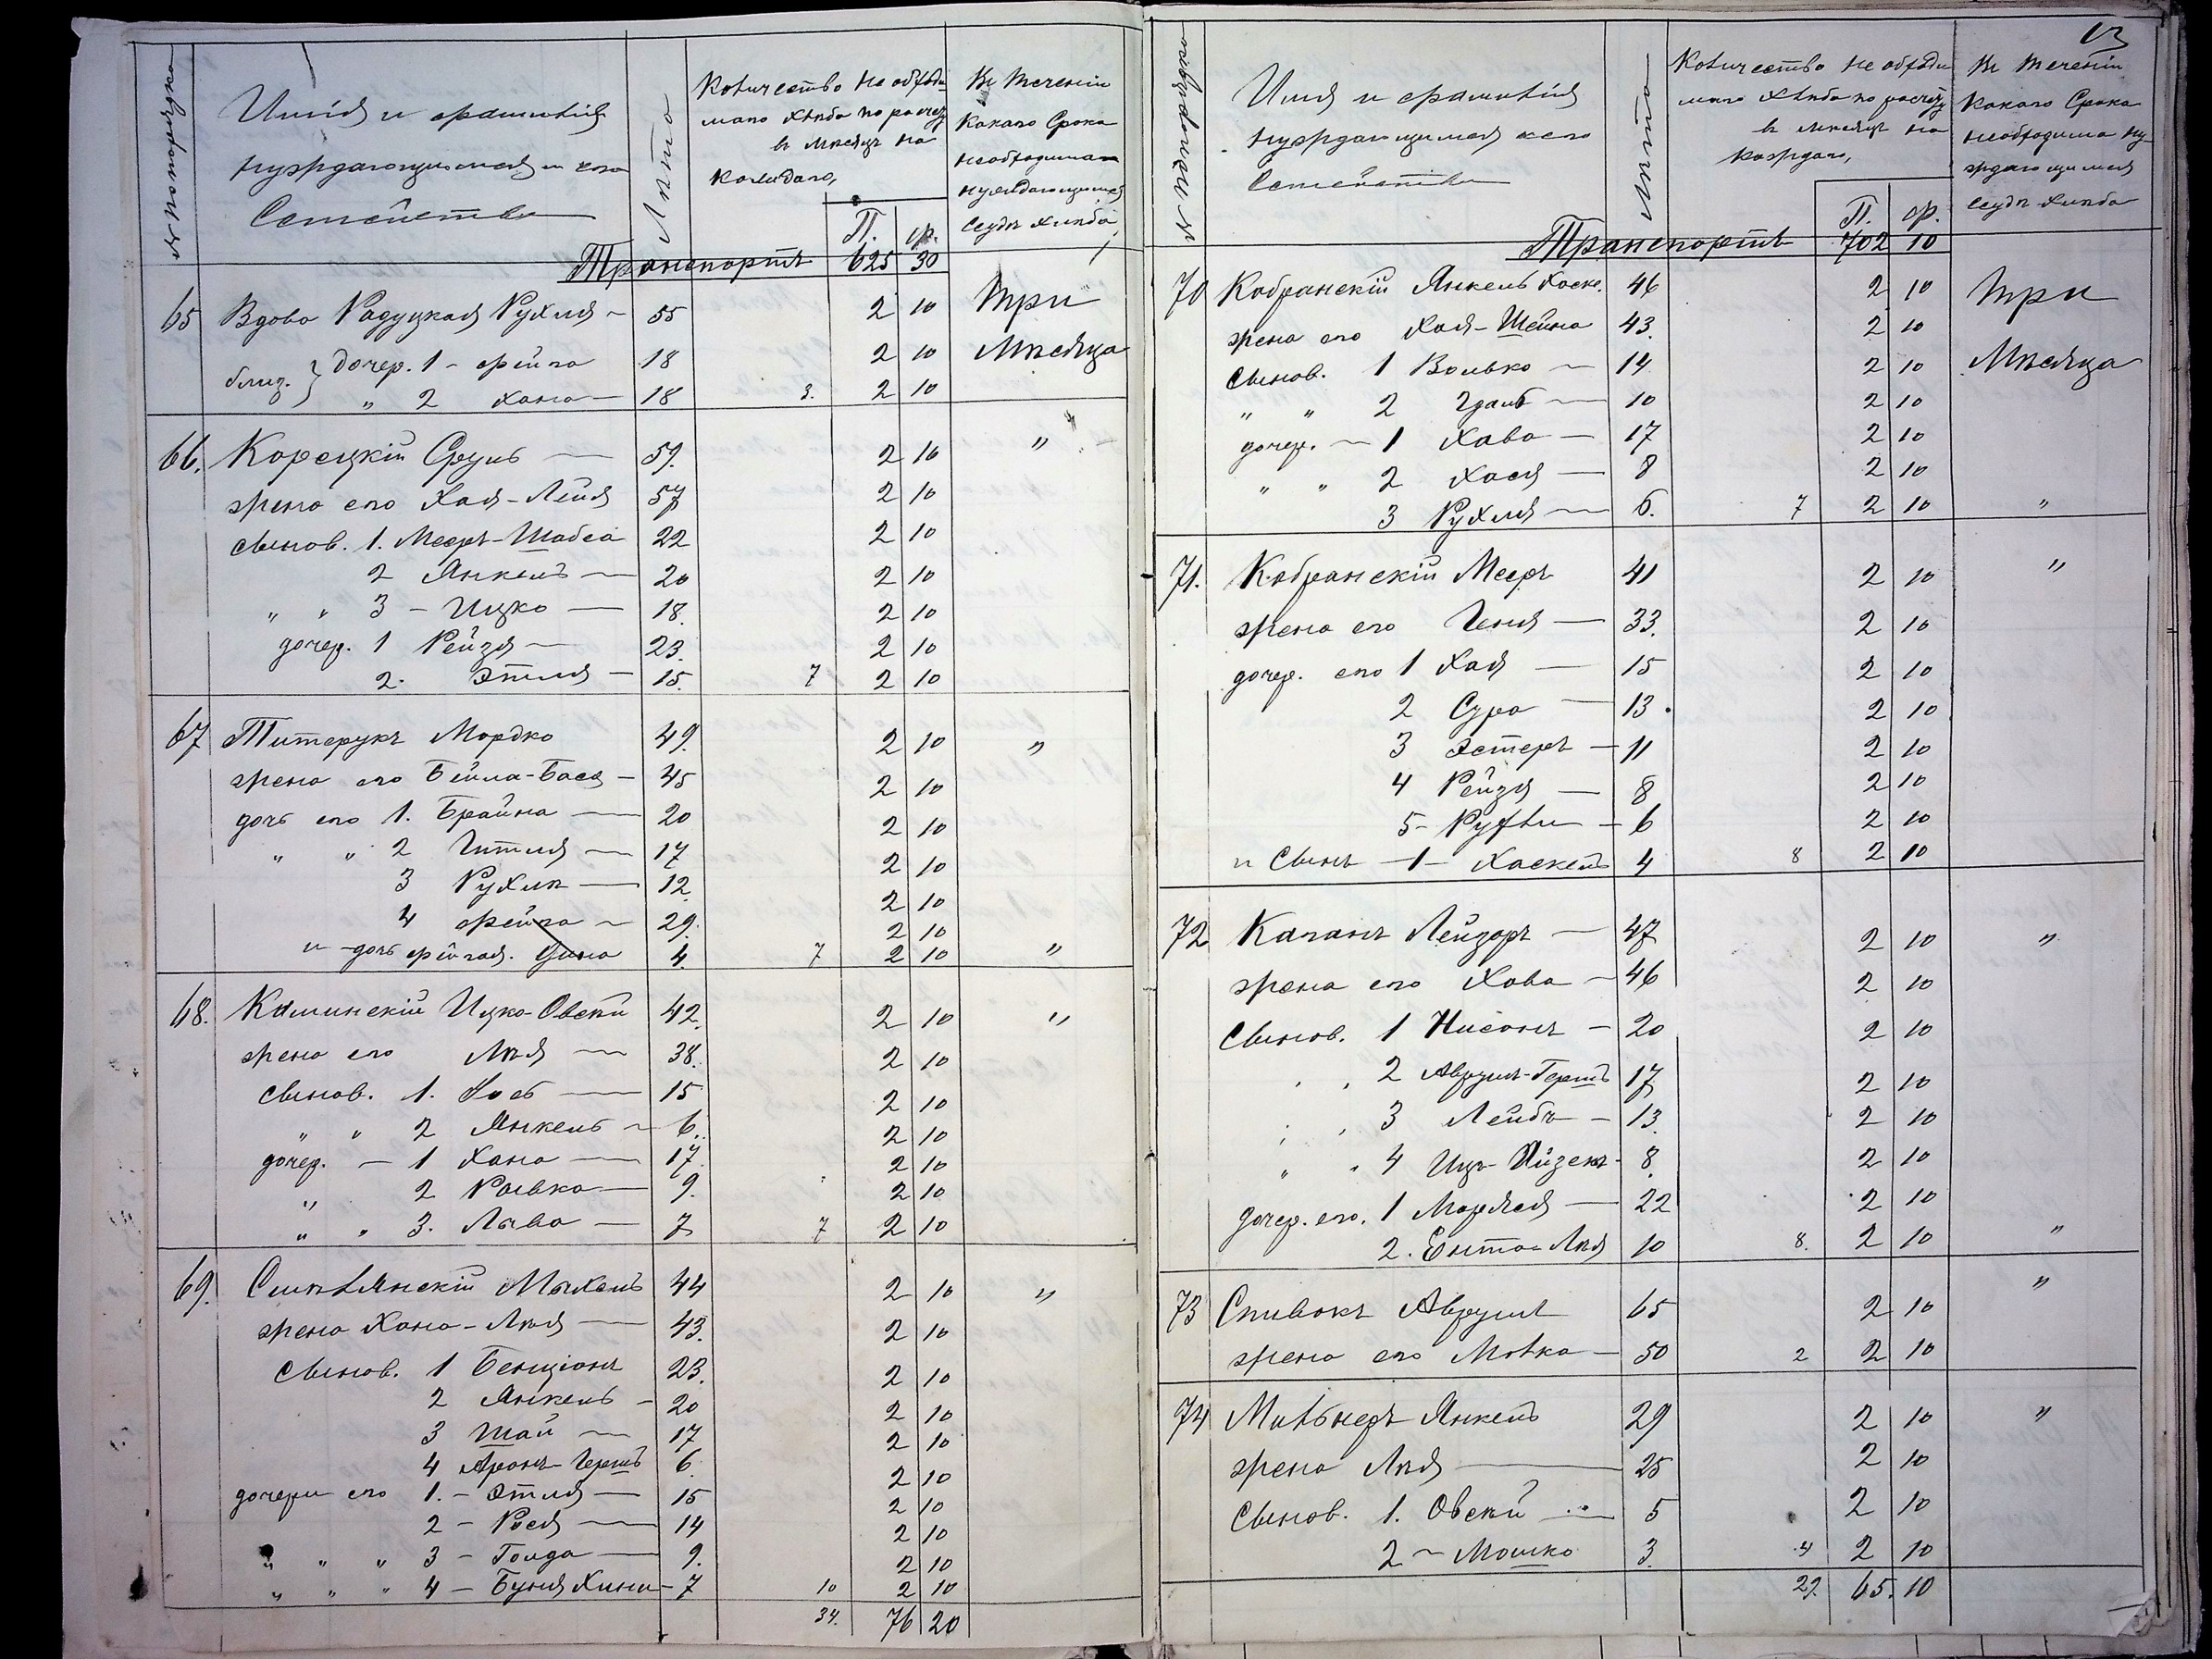 № по порядку
Имя и фамилія
нуждающимся и его
Семейства
Лѣта
Количество необходи-
маго хлѣба по расчету
въ мѣсяцъ на
каждаго,
П. ф.
Въ теченіи
какого Срока
необходима
нуждающимся
Ссуда хлѣба
Транспортъ 625 30
65 Вдова Радуцкая Рухля 55 2 10 три
близ. дочер. 1 - Фейга 18 2 10 Мѣсяца
" 2 Хана 18 3. 2 10
66. Корецкій Сруль 59. 2 10 "
жена его Хая-Лейя 57 2 10
Сынов. 1. Меер-Шабса 22 2 10
2 Янкель 20 2 10
" " 3 - Ицко 18. 2 10
дочер. 1 Рейзя 23. 2 10
2. Этля 15. 7 2 10
67 Титерукъ Мордко 49. 2 10 "
жена его Бейла-Бася 45 2 10
дочь его 1. Брайна 20 2 10
" " 2 Гитля 17 2 10
3 Рухля 12. 2 10
4 Фейга 29. 2 10
и дочь Фейгая. Дина 4. 7 2 10 "
68. Каминскій Ицко-Овсей 42. 2 10 "
жена его Лѣя 38. 2 10
Сынов. 1. Іось 15 2 10
" " 2 Янкель 6. 2 10
дочер. - 1 Хана 17. 2 10
" 2 Ривка 9. 2 10
" " 3. Лыва 7 7 2 10
69. Смѣлянскій Мыхель 44 2 10 "
жена Хана-Лѣя 43. 2 10
Сынов. 1 Бенціонъ 23. 2 10
2 Янкель 20 2 10
3 Шай 17 2 10
4 Аронъ-Гершъ 6. 2 10
дочери его 1. - Этля 15 2 10
2 - Рося 14 2 10
" " " 3 - Голда 9. 2 10
" " " 4 - Буня Хини 7 10 2 10
34. 76 20
13
№ по порядку
Имя и фамилія
нуждающимся и его
Семейства
Лѣта
Количество необходи-
маго хлѣба по расчету
въ мѣсяцъ на
каждаго,
П. ф.
Въ теченіи
какого Срока
необходима ну-
ждающимся
Ссуда хлѣба
Транспортъ 702 10
70 Кобранскій Янкель Хаск. 46 2 10 три
жена его Хая-Шейна 43. 2 10
Сынов. 1 Волько 14 2 10 Мѣсяца
" " 2 Гдаль 10 2 10
дочер. 1 Хава 17 2 10
" " 2 Хася 8 2 10
3 Рухля 6. 7 2 10 "
71. Кобранскій Мееръ 41 2 10 "
жена его Геня 33. 2 10
дочер. его 1 Хая 15 2 10
2 Сура 13. 2 10
3 Эстеръ 11 2 10
4 Рейзя 8 2 10
5 - Рухли 6 2 10
и Сынъ - 1 - Хаскель 4 8 2 10
72 Каганъ Лейзоръ 47 2 10 "
жена его Хава 46 2 10
Сынов. 1 Нисонъ 20 2 10
" " 2 Аврумъ-Гершъ 17 2 10
" " 3 Лейбъ 13. 2 10
" " 4 Ицъ-Айзекъ 8. 2 10
дочер. его. 1 Маріася 22 2 10
2. Ента-Лѣя 10 8. 2 10 "
73 Спивакъ Аврумъ 65 2 10 "
жена его Малка 50 2 2 10
74 Мильнеръ Янкель 29 2 10 "
жена Лѣя 25 2 10
Сынов. 1. Овсей 5 2 10
2 - Мошко 3. 4 2 10
29. 65. 10